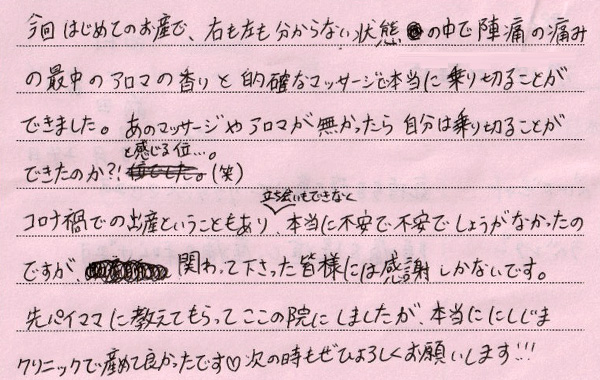 今回はじめてのお産で、右も左も分からない状態の中で陣痛の痛み
の最中のアロマの香りと的確なマッサージで本当に乗り切ることが
できました。あのマッサージやアロマが無かったら自分は乗り切ることが
できたのか?!と感じる位…。(笑)
コロナ禍での出産ということもあり、立ち会いもできなく本当に不安で不安でしょうがなかったの
ですが、関わって下さった皆様には感謝しかないです。
先パイママに教えてもらってここの院にしましたが、本当ににしじま
クリニックで産めて良かったです♡次の時もぜひよろしくお願いします!!!